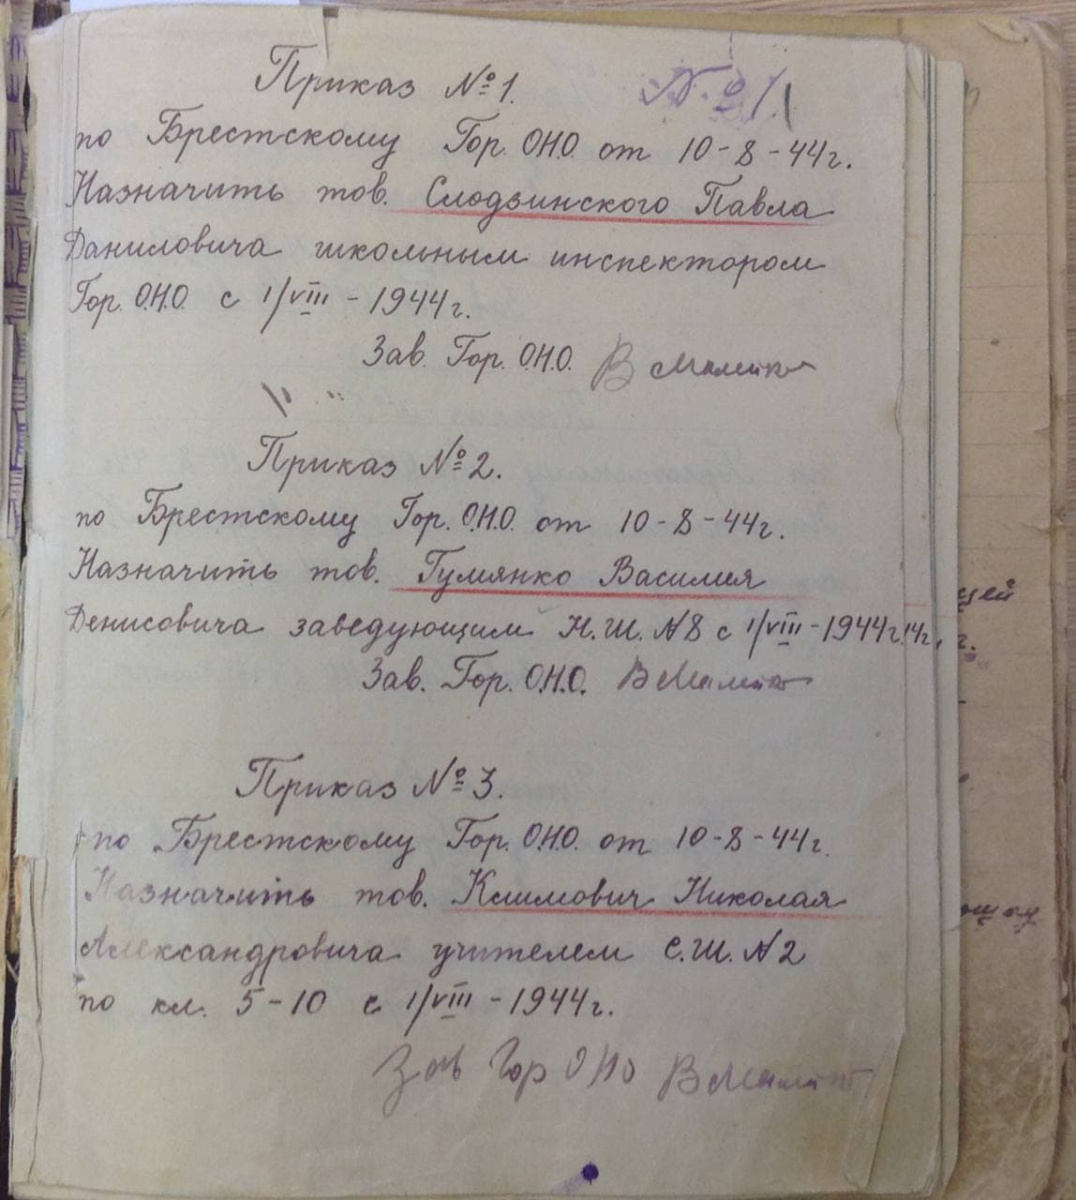 Приказ № 1.
по Брестскому Гор. О.Н.О. от 10-8-44г.
Назначить тов. Слодзинского Павла
Даниловича школьным инспектором
Гор. О.Н.О. с 1/VIII - 1944г.
Зав. Гор. О.Н.О. В
Приказ № 2.
по Брестскому Гор. О.Н.О. от 10-8-44г.
Назначить тов. Гумянко Василия
Денисовича заведующим Н.Ш. N8 с 1/VIII-1944г.
Зав. Гор. О.Н.О. В
Приказ № 3.
по Брестскому Гор. О.Н.О. от 10-8-44г.
Назначить тов. Климович Николая
Александровича учителем С.Ш. N2
по кл. 5-10 с 1/VIII-1944г.
Зав Гор ОНО В